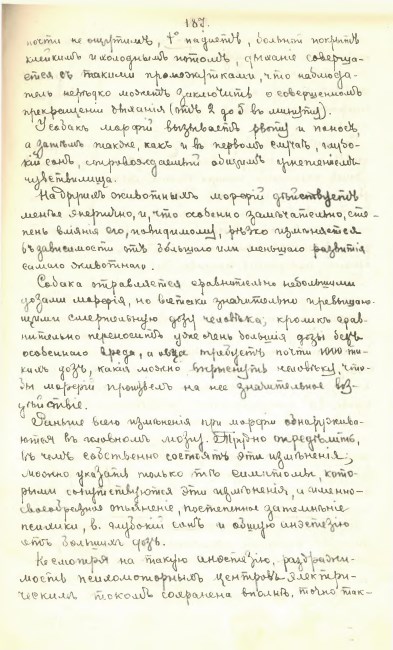 187.
почти не ощутимъ, t° падаетъ, больной покрытъ
клейкимъ и холоднымъ потомъ, дыханіе соверша-
ется съ такими промежутками, что наблюда-
тель нерѣдко можетъ заключить о совершенномъ
прекращеніи дыханія (отъ 2 до 5 въ минуту).
У собакъ морфій вызываетъ рвоту и поносъ,
а затѣмъ также, какъ и въ первомъ случаѣ, глубо-
кій сонъ, сопровождаемый общимъ угнетеніемъ
чувствилища.
На другихъ животныхъ морфій дѣйствуетъ
менѣе энергично, и, что особенно замѣчательно, сте-
пень вліянія его, повидимому, рѣзко измѣняется
въ зависимости отъ большаго или меньшаго развитія
самаго животнаго.
Собака отравляется сравнительно небольшими
дозами морфія, но всетаки значительно превышаю-
щими смертельную дозу человѣка; кроликъ срав-
нительно переноситъ уже очень большія дозы безъ
особеннаго вреда, а овца требуетъ почти 1000 та-
кихъ дозъ, какія можно впрыснуть человѣку, что-
бы морфій произвелъ на нее значительное воз-
дѣйствіе.
Раньше всего измѣненія при морфіи обнаружива-
ются въ головномъ мозгу. Трудно опредѣлить,
въ чемъ собственно состоятъ эти измѣненія;
можно указать только тѣ симптомы, кото-
рыми сопутствуются эти измѣненія, и именно-
своеобразное опьяненіе, постепенное затемнѣніе
психики, в. глубокій сонъ и общую анэстезію
отъ большихъ дозъ.
Несмотря на такую анэстезію, раздражи-
мость психомоторныхъ центровъ электри-
ческимъ токомъ сохранена вполнѣ, точно так-